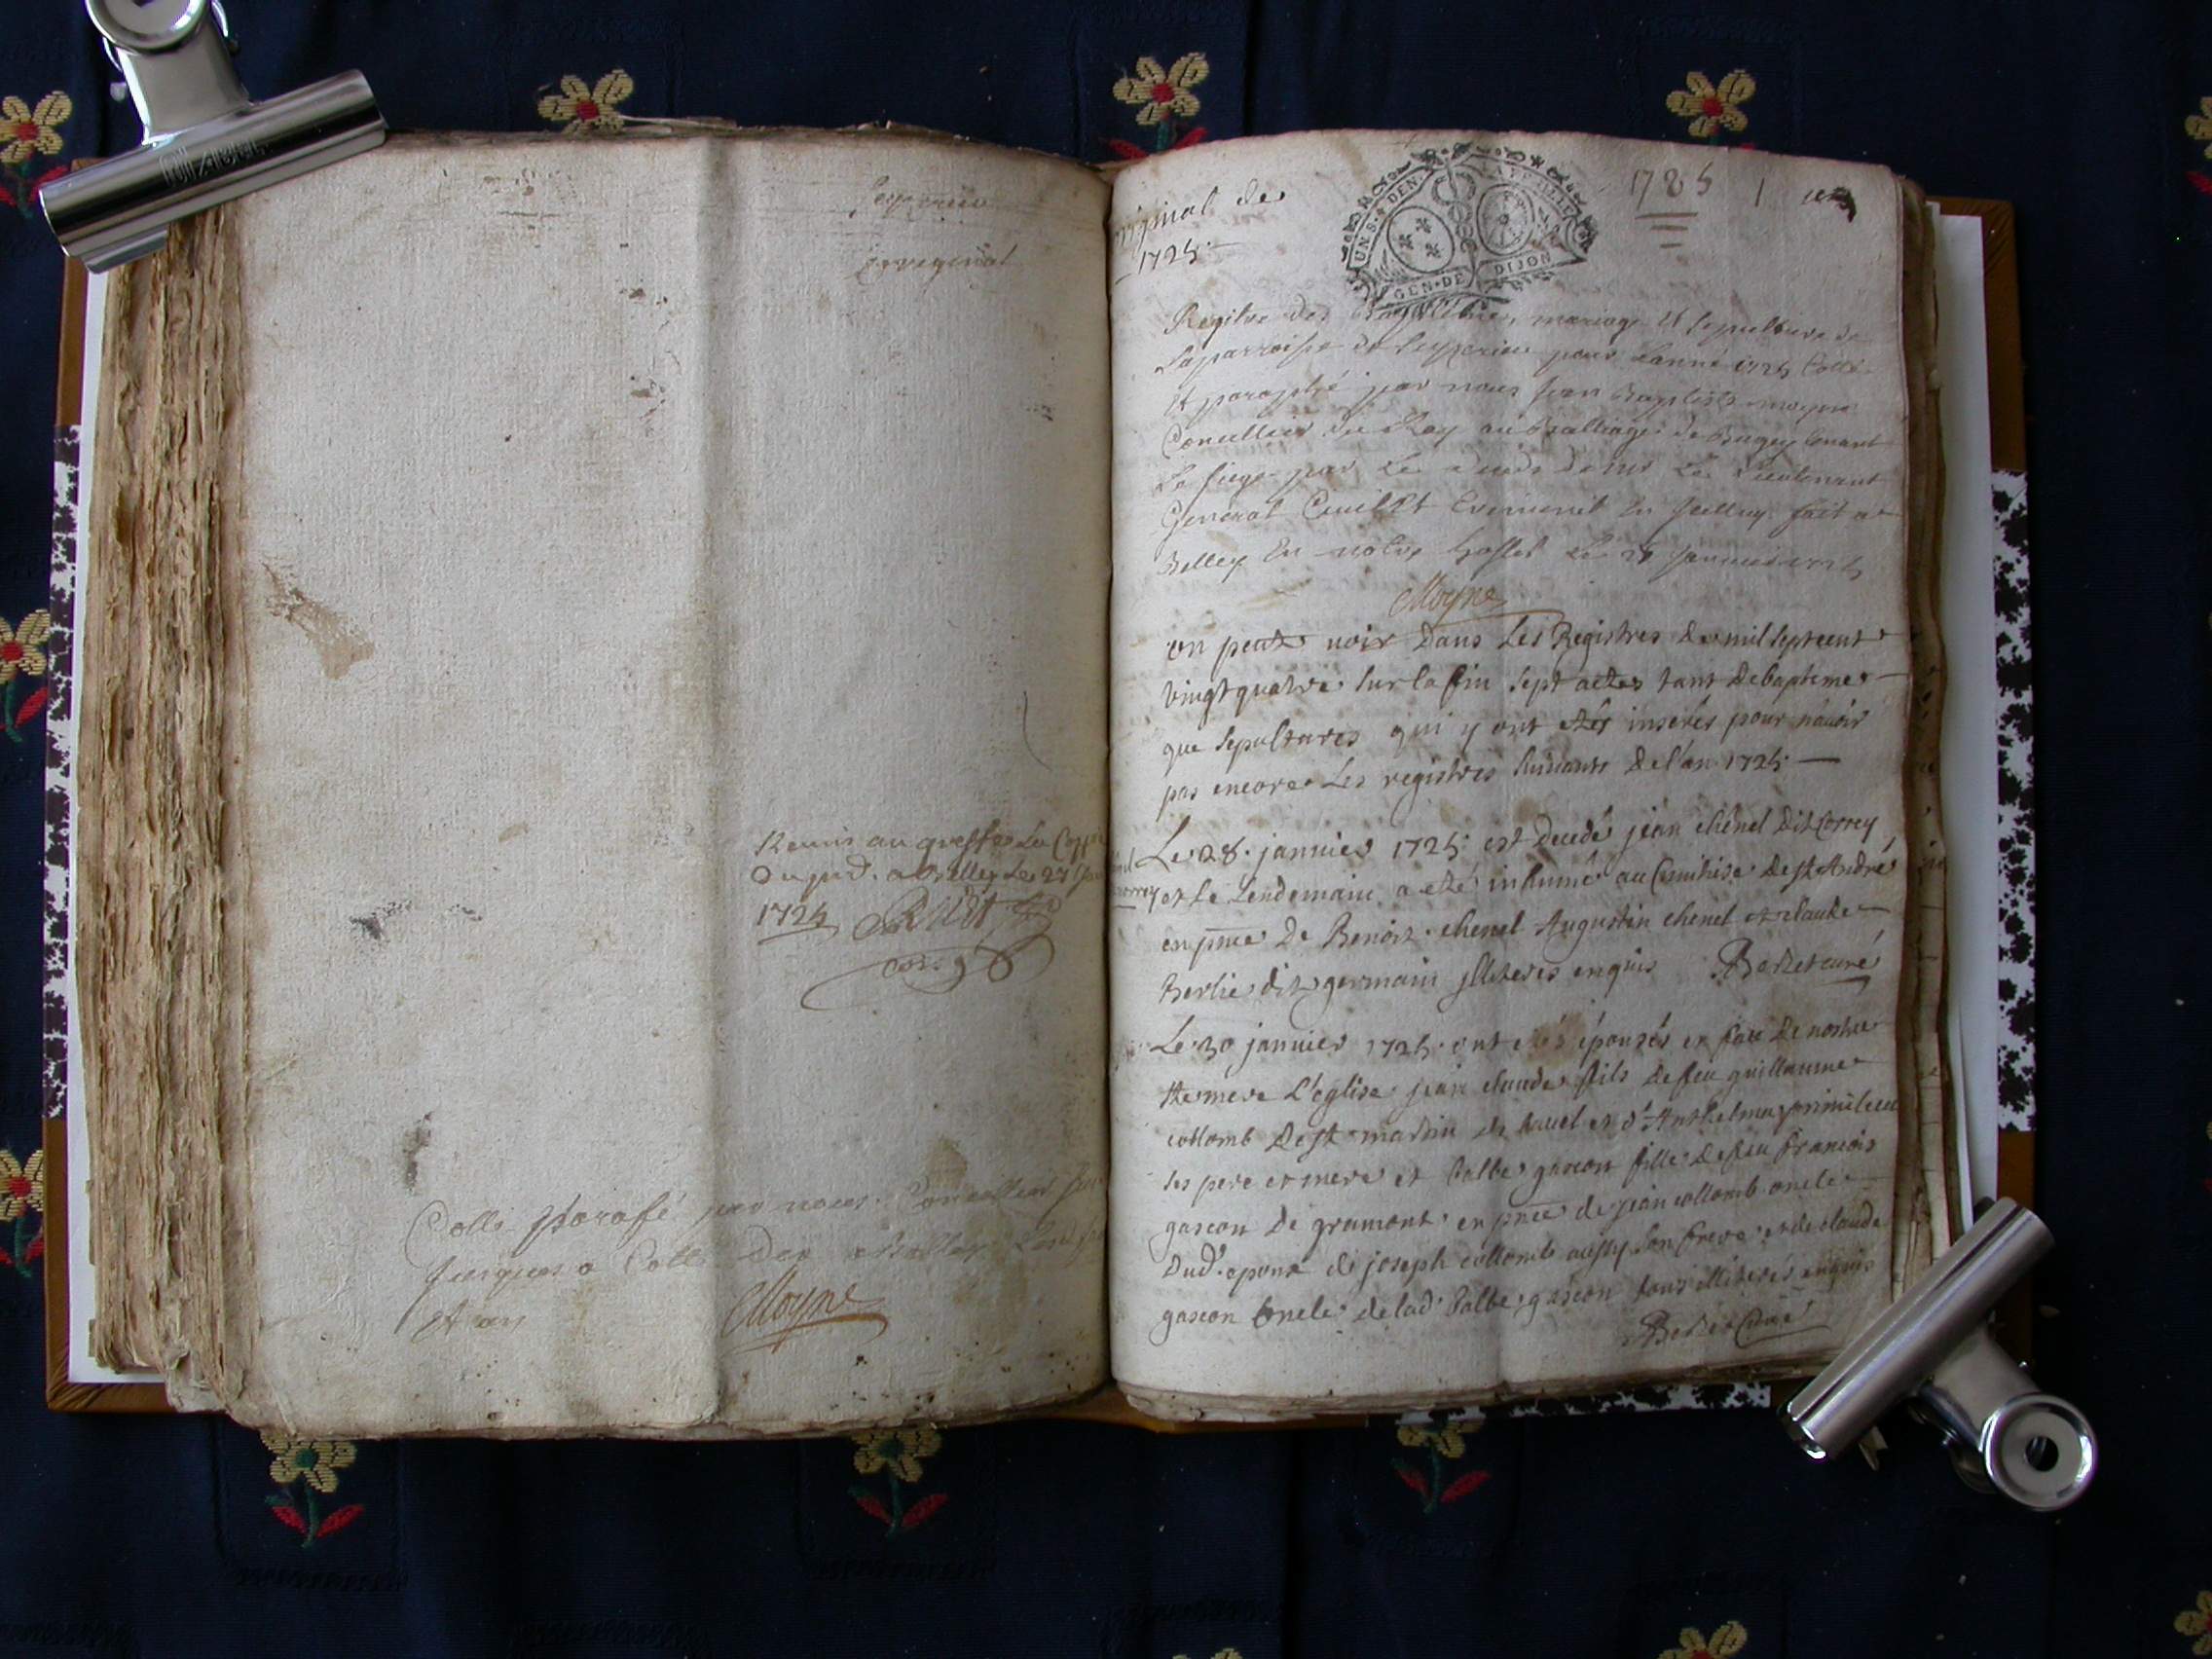 Ceyzerieu
orreginal
Remis au greffe La Coppie
Du pnt. a Belley Le 27
1724
Cotté Parafé par nous Conseiller
jusques a Cotte Dix a Belley
et an
Moyne
original de
1725.
UN.S.4.DEN. LA FEUILLE
GEN. DE DIJON
1725 1 er
Regitre des Baptême, mariage Et sepulture de
la parroisse de Ceyzerieu pour Lanné 1725 Cotté
Et paraphé par nous Jean Baptiste moyne
Conseiller du Roy au Bailliage de Bugey tenant
Le siege par Le deceds de mr Le Lieutenant
General Civil Et Criminel En jcelluy. fait a
Belley En notre hostel Le 27 Janvier 1725
Moyne
on peut voir Dans Les Registres de mil sept cent
vingt quatre sur la fin sept actes tant De baptemes
que sepultures qui y ont étés inserés pour n'avoir
pas encore Les registres suivants De l'an 1725
Le 28. janvier 1725. est Decedé jean chênel Dit Correy
et Le Lendemain a eté inhumé au Cimitise De st André
en pnce De Benoit chenel Augustin chenel et claude
Berlie dit germain jlliteres enquis Bordet curé
Le 30 janvier 1725. ont étés épousés en face De nostre
ste mere L'eglise jean claude fils De feu guillaume
collomb De st martin de bavel et d' Anthelma
ses pere et mere et balbe gascon fille De feu francois
gascon De gramont en pnce de jean collomb oncle
Dud. epoux de joseph collomb aussy son frere et de claude
gascon oncle de lad. balbe gascon tous illiteres enquis
Bordet Curé